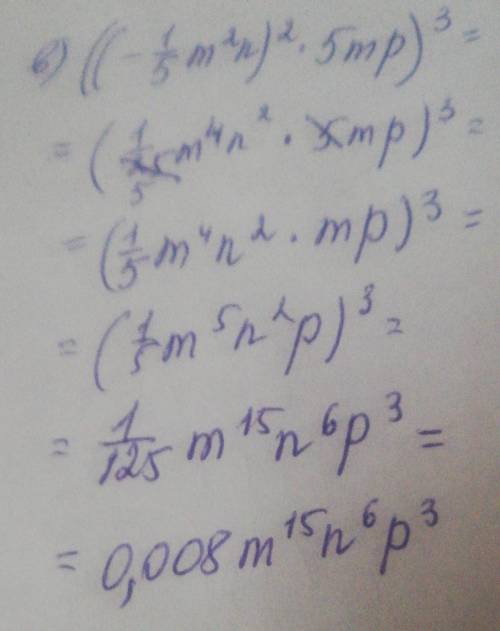 в) ((-1/5 m²n)² · 5mp)³ =
= (1/25 m⁴n² · 5mp)³ =
5
= (1/5 m⁴n² · mp)³ =
= (1/5 m⁵n²p)³ =
= 1/125 m¹⁵n⁶p³ =
= 0,008m¹⁵n⁶p³